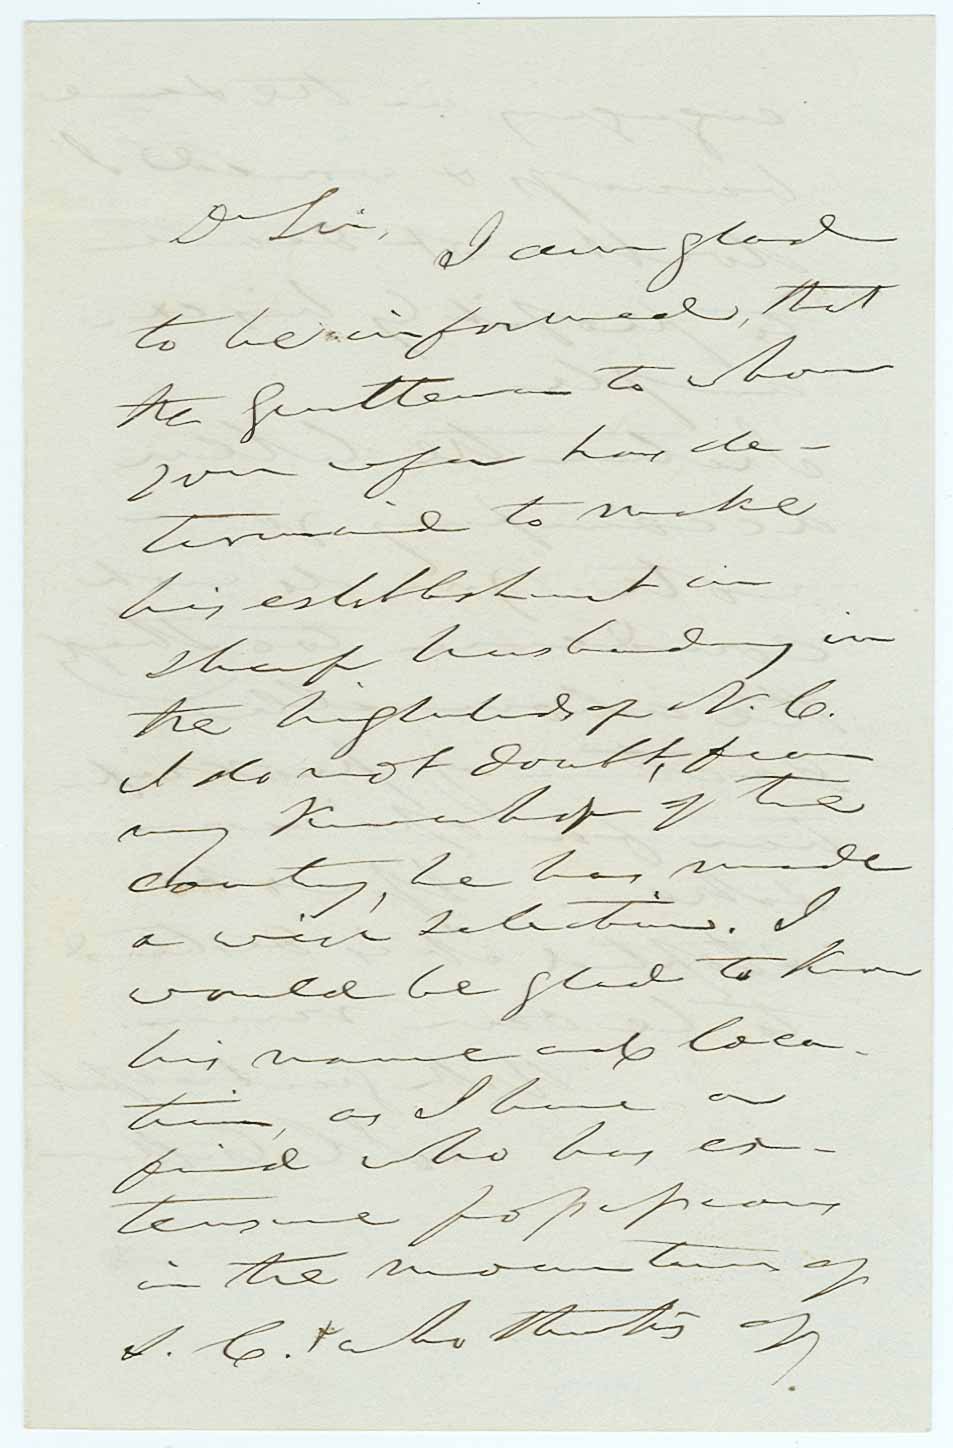 Dr Sir, I am glad
to be informed, that
the gentleman to whom
you refer has de-
termined to make
his establishment in
sheep husbandry in
the highlands of N. C.
I do not doubt, from
my knowledge of the
country, he has made
a wise selection. I
would be glad to know
his name and loca-
tion, as I have a
friend who has ex-
tensive possessions
in the mountains of
S. C. & who thinks of